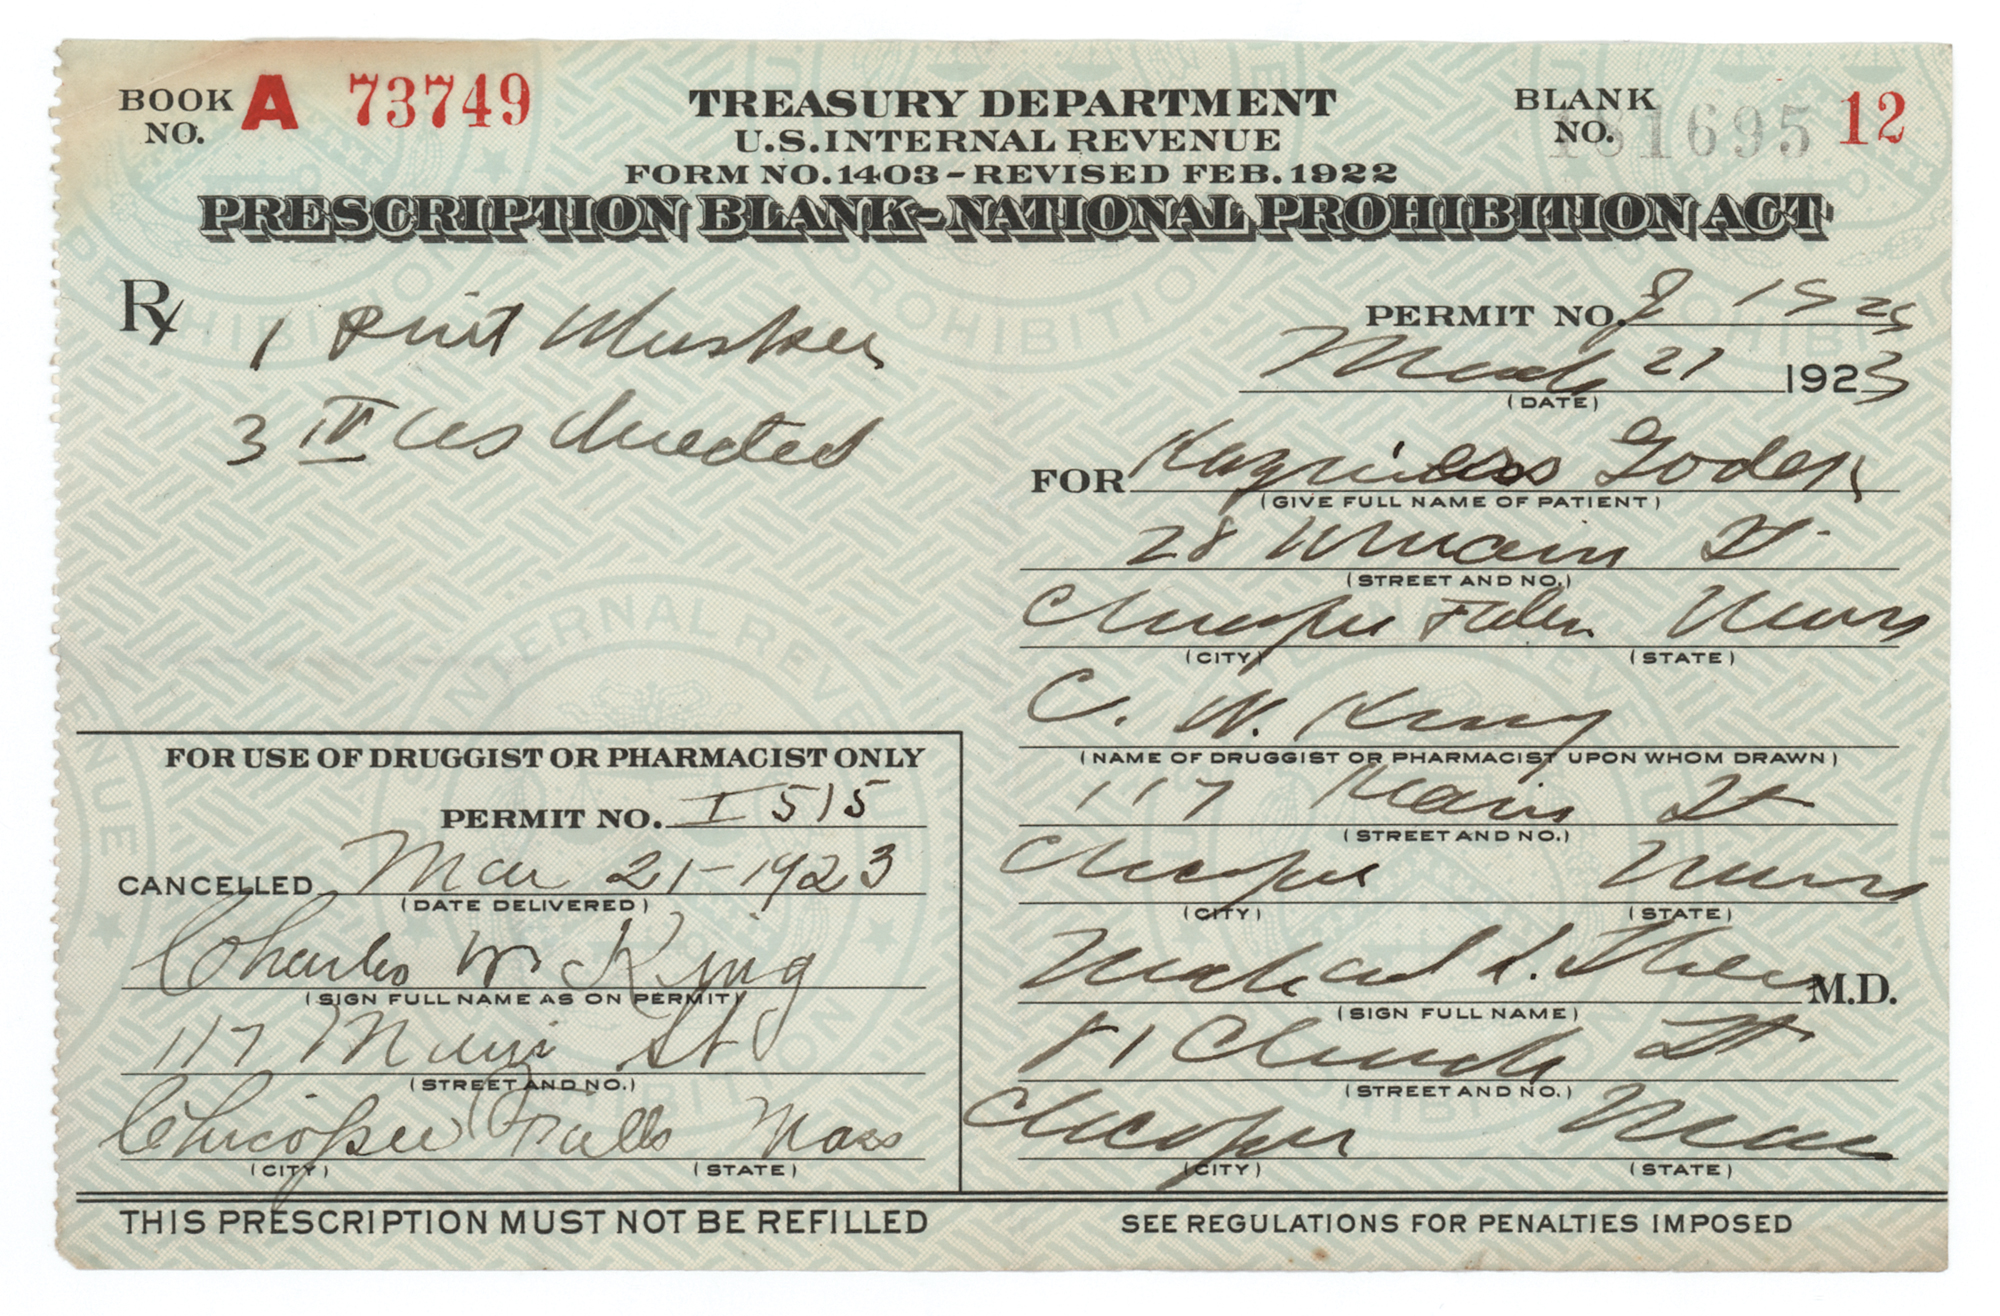 BOOK NO. A 73749
TREASURY DEPARTMENT
U.S. INTERNAL REVENUE
FORM NO. 1403 - REVISED FEB. 1922
BLANK NO. 12
181695
PRESCRIPTION BLANK - NATIONAL PROHIBITION ACT
Rx
1 Pint Whiskey
3 IV as directed
PERMIT NO.
March 21 1923
(DATE)
FOR
(GIVE FULL NAME OF PATIENT)
28 Main St
(STREET AND NO.)
Chicopee Falls Mass
(CITY) (STATE)
C. W. King
(NAME OF DRUGGIST OR PHARMACIST UPON WHOM DRAWN)
117 Main St
(STREET AND NO.)
Chicopee Mass
(CITY) (STATE)
Michael M.D.
(SIGN FULL NAME)
81 Church St
(STREET AND NO.)
Chicopee Mass
(CITY) (STATE)
FOR USE OF DRUGGIST OR PHARMACIST ONLY
PERMIT NO. I 515
CANCELLED Mar 21-1923
(DATE DELIVERED)
Charles W King
(SIGN FULL NAME AS ON PERMIT)
117 Main St
(STREET AND NO.)
Chicopee Falls Mass
(CITY) (STATE)
THIS PRESCRIPTION MUST NOT BE REFILLED
SEE REGULATIONS FOR PENALTIES IMPOSED